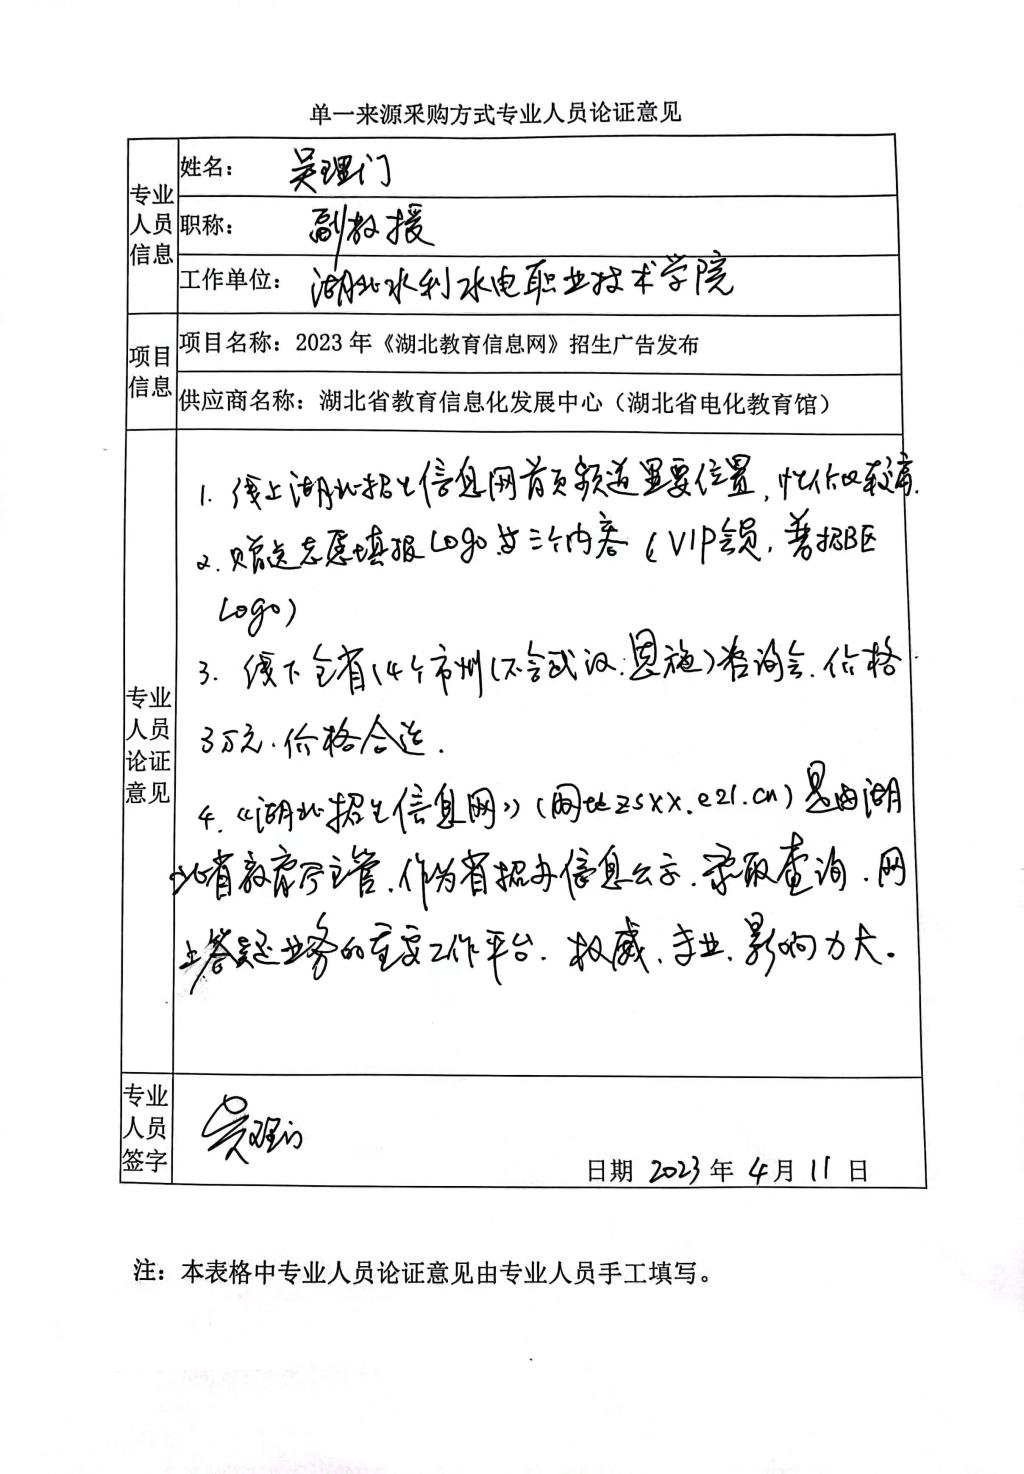 单一来源采购方式专业人员论证意见
专业人员信息
姓名： 吴理门
职称： 副教授
工作单位： 湖北水利水电职业技术学院
项目信息
项目名称：2023年《湖北教育信息网》招生广告发布
供应商名称：湖北省教育信息化发展中心（湖北省电化教育馆）
专业人员论证意见
1. 线上湖北招生信息网首页频道重要位置，性价比较高.
2. 赠送志愿填报Logo与三个内容（VIP会员，普招B区
Logo）
3. 线下全省14个市州（不含武汉.恩施）咨询会.价格
3万元.价格合适.
4.《湖北招生信息网》（网址zsxx.e21.cn）是由湖
北省教育厅主管.作为省招办信息公示.录取查询.网
上答疑业务的重要工作平台.权威.专业.影响力大。
专业人员签字
吴理门
日期 2023年4月11日
注：本表格中专业人员论证意见由专业人员手工填写。